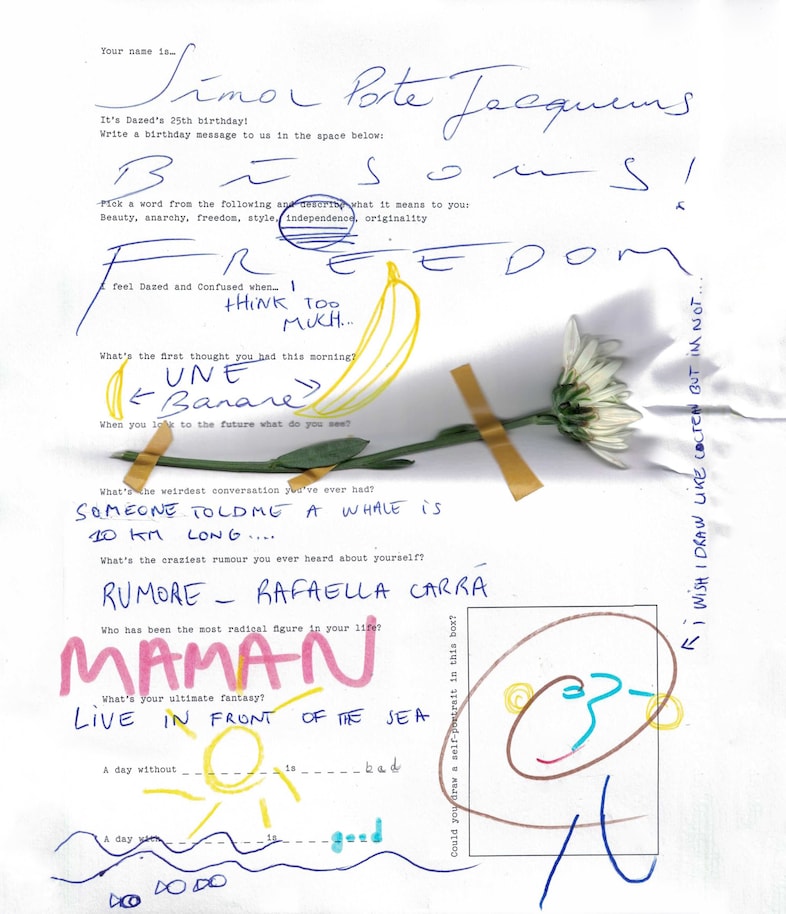 Your name is…
Simon Porte Jacquemus
It's Dazed's 25th birthday!
Write a birthday message to us in the space below:
Bisous!
x
Pick a word from the following and describe what it means to you:
Beauty, anarchy, freedom, style, independence, originality
FREEDOM
I feel Dazed and Confused when… I
THINK TOO
MUCH...
What's the first thought you had this morning?
UNE
Banane
When you look to the future what do you see?
What's the weirdest conversation you've ever had?
SOMEONE TOLD ME A WHALE IS
10 KM LONG....
What's the craziest rumour you ever heard about yourself?
RUMORE - RAFAELLA CARRÁ
Who has been the most radical figure in your life?
MAMAN
What's your ultimate fantasy?
LIVE IN FRONT OF THE SEA
A day without _ _ _ _ _ _ _ _ _ is _ _ _ _ _ bad
A day with _ _ _ _ _ _ _ _ _ is _ _ _ _ _ good
Could you draw a self-portrait in this box?
I WISH I DRAW LIKE COCTEAU BUT IM NOT...